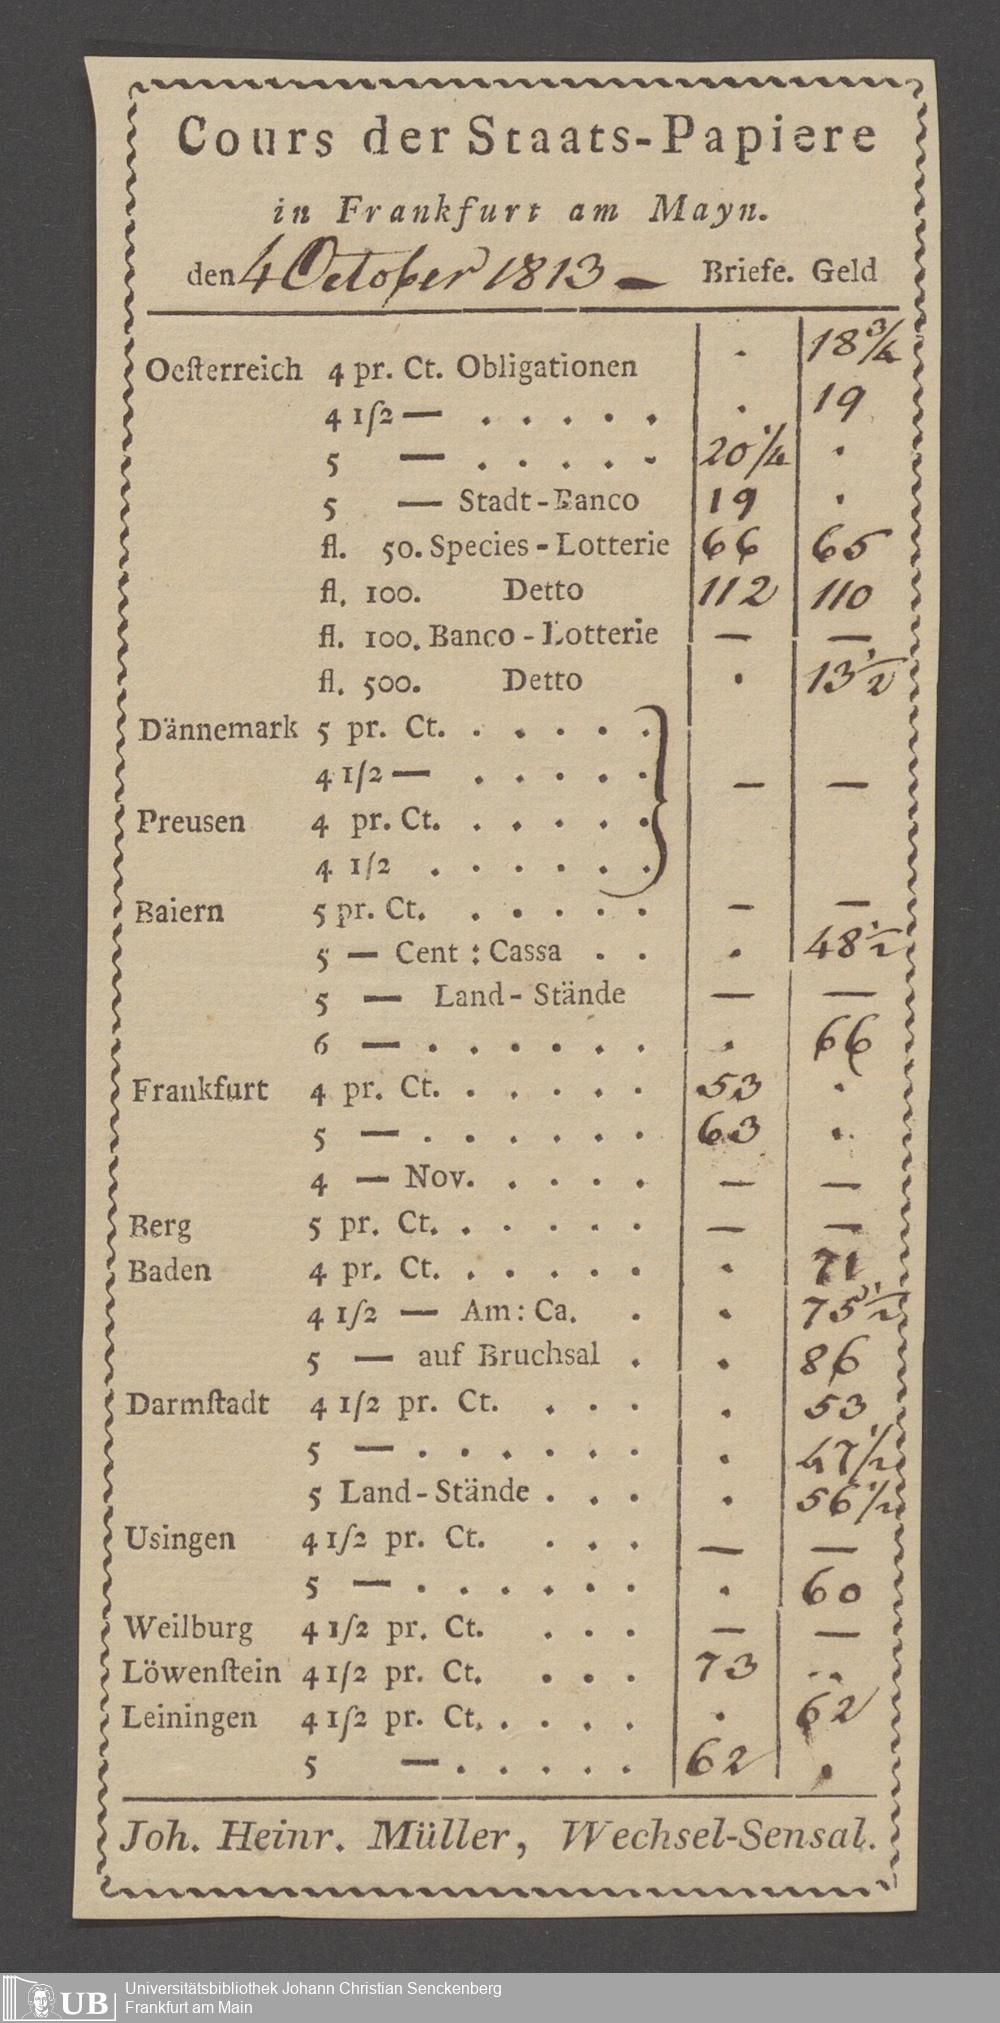 Cours der Staats-Papiere
in Frankfurt am Mayn.
den 4 October 1813 — Briefe. Geld
Oesterreich 4 pr. Ct. Obligationen . 18 3/4
4 1/2 — . . . . . . 19
5 — . . . . . 20 1/4 .
5 — Stadt-Banco 19 .
fl. 50. Species-Lotterie 66 65
fl. 100. Detto 112 110
fl. 100. Banco-Lotterie — —
fl. 500. Detto . 13 1/2
Dännemark 5 pr. Ct. . . . . .
4 1/2 — . . . . . — —
Preusen 4 pr. Ct. . . . . .
4 1/2 . . . . . .
Baiern 5 pr. Ct. . . . . . — —
5 — Cent : Cassa . . . 48 1/2
5 — Land-Stände — —
6 — . . . . . . . 66
Frankfurt 4 pr. Ct. . . . . . 53 .
5 — . . . . . . 63 .
4 — Nov. . . . . — —
Berg 5 pr. Ct. . . . . . — —
Baden 4 pr. Ct. . . . . . . 71
4 1/2 — Am: Ca. . . 75 1/2
5 — auf Bruchsal . . 86
Darmstadt 4 1/2 pr. Ct. . . . . 53
5 — . . . . . . . 47 1/2
5 Land-Stände . . . . 56 1/2
Usingen 4 1/2 pr. Ct. . . . — —
5 — . . . . . . . 60
Weilburg 4 1/2 pr. Ct. . . . — —
Löwenstein 4 1/2 pr. Ct. . . . 73 ..
Leiningen 4 1/2 pr. Ct. . . . . . 62
5 — . . . . . 62 .
Joh. Heinr. Müller, Wechsel-Sensal.
UB Universitätsbibliothek Johann Christian Senckenberg
Frankfurt am Main